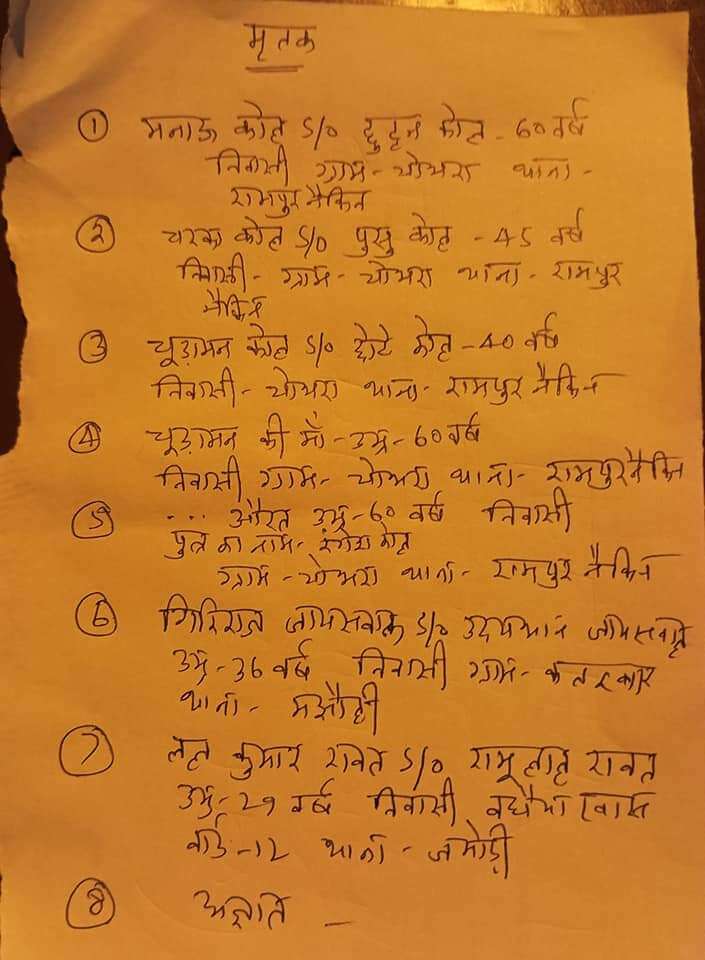 मृतक
① मनाऊ कोल S/o दुद्दन कोल - 60 वर्ष
निवासी ग्राम - चोभरा थाना -
रामपुर नैकिन
② चरका कोल S/o पुसु कोल - 45 वर्ष
निवासी - ग्राम - चोभरा थाना - रामपुर
नैकिन
③ चूड़ामन कोल S/o छोटे कोल - 40 वर्ष
निवासी - चोभरा थाना - रामपुर नैकिन
④ चूड़ामन की माँ - उम्र - 60 वर्ष
निवासी ग्राम - चोभरा थाना - रामपुर नैकिन
⑤ ... औरत उम्र - 60 वर्ष निवासी
पुत्र का नाम - कोल
ग्राम - चोभरा थाना - रामपुर नैकिन
⑥ गिरिराज जायसवाल S/o उदयभान जायसवाल
उम्र - 36 वर्ष निवासी ग्राम -
थाना -
⑦ लल कुमार रावत S/o रामू लाल रावत
उम्र - 29 वर्ष निवासी
वार्ड - 12 थाना - जमोड़ी
⑧ अज्ञात -